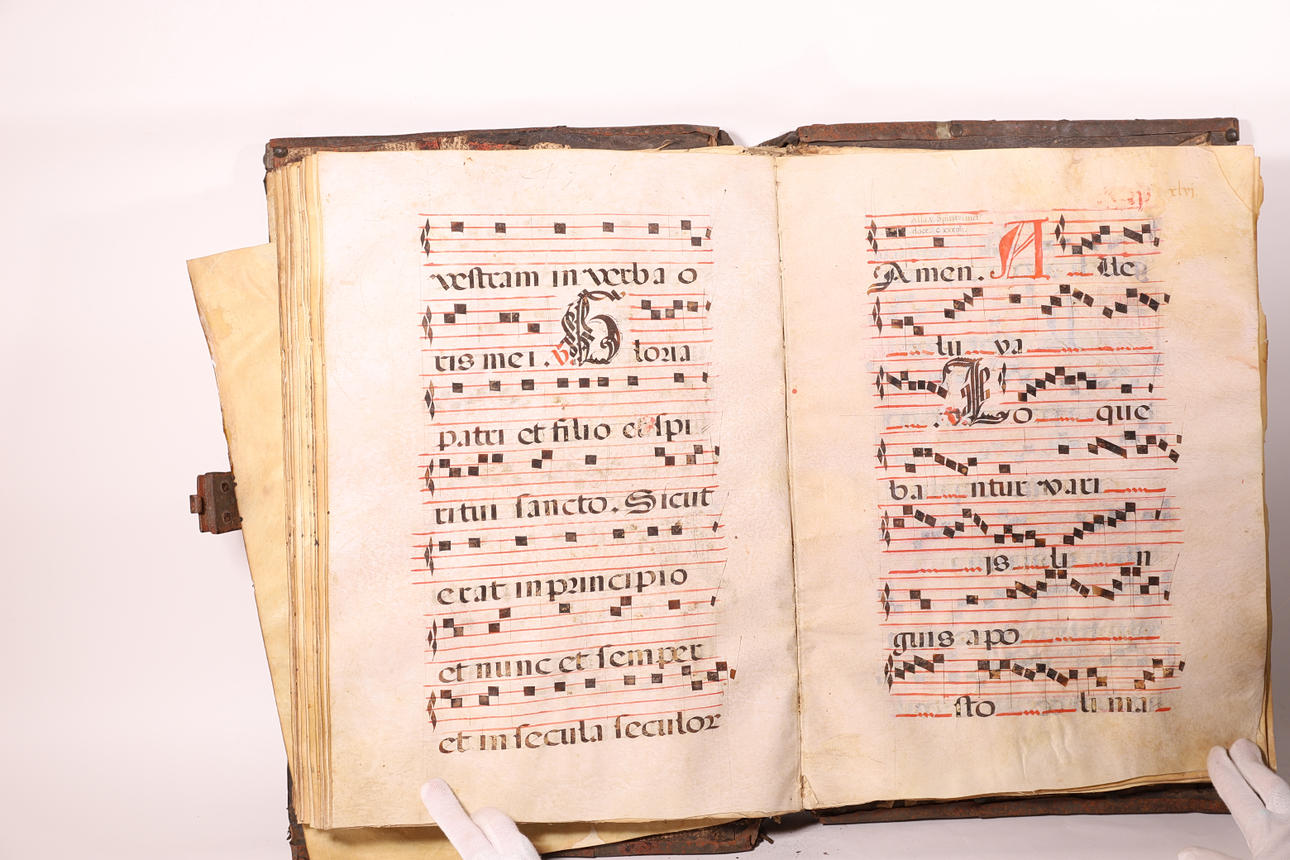 vestram in verba o
ris mei. V. Gloria
patri et filio et spi
ritui sancto. Sicut
erat in principio
et nunc et semper
et in secula seculor
xlvj
Amen. A lle
lu ya
V. Lo que
ba ntur vari
is li n
guis apo
sto li ma